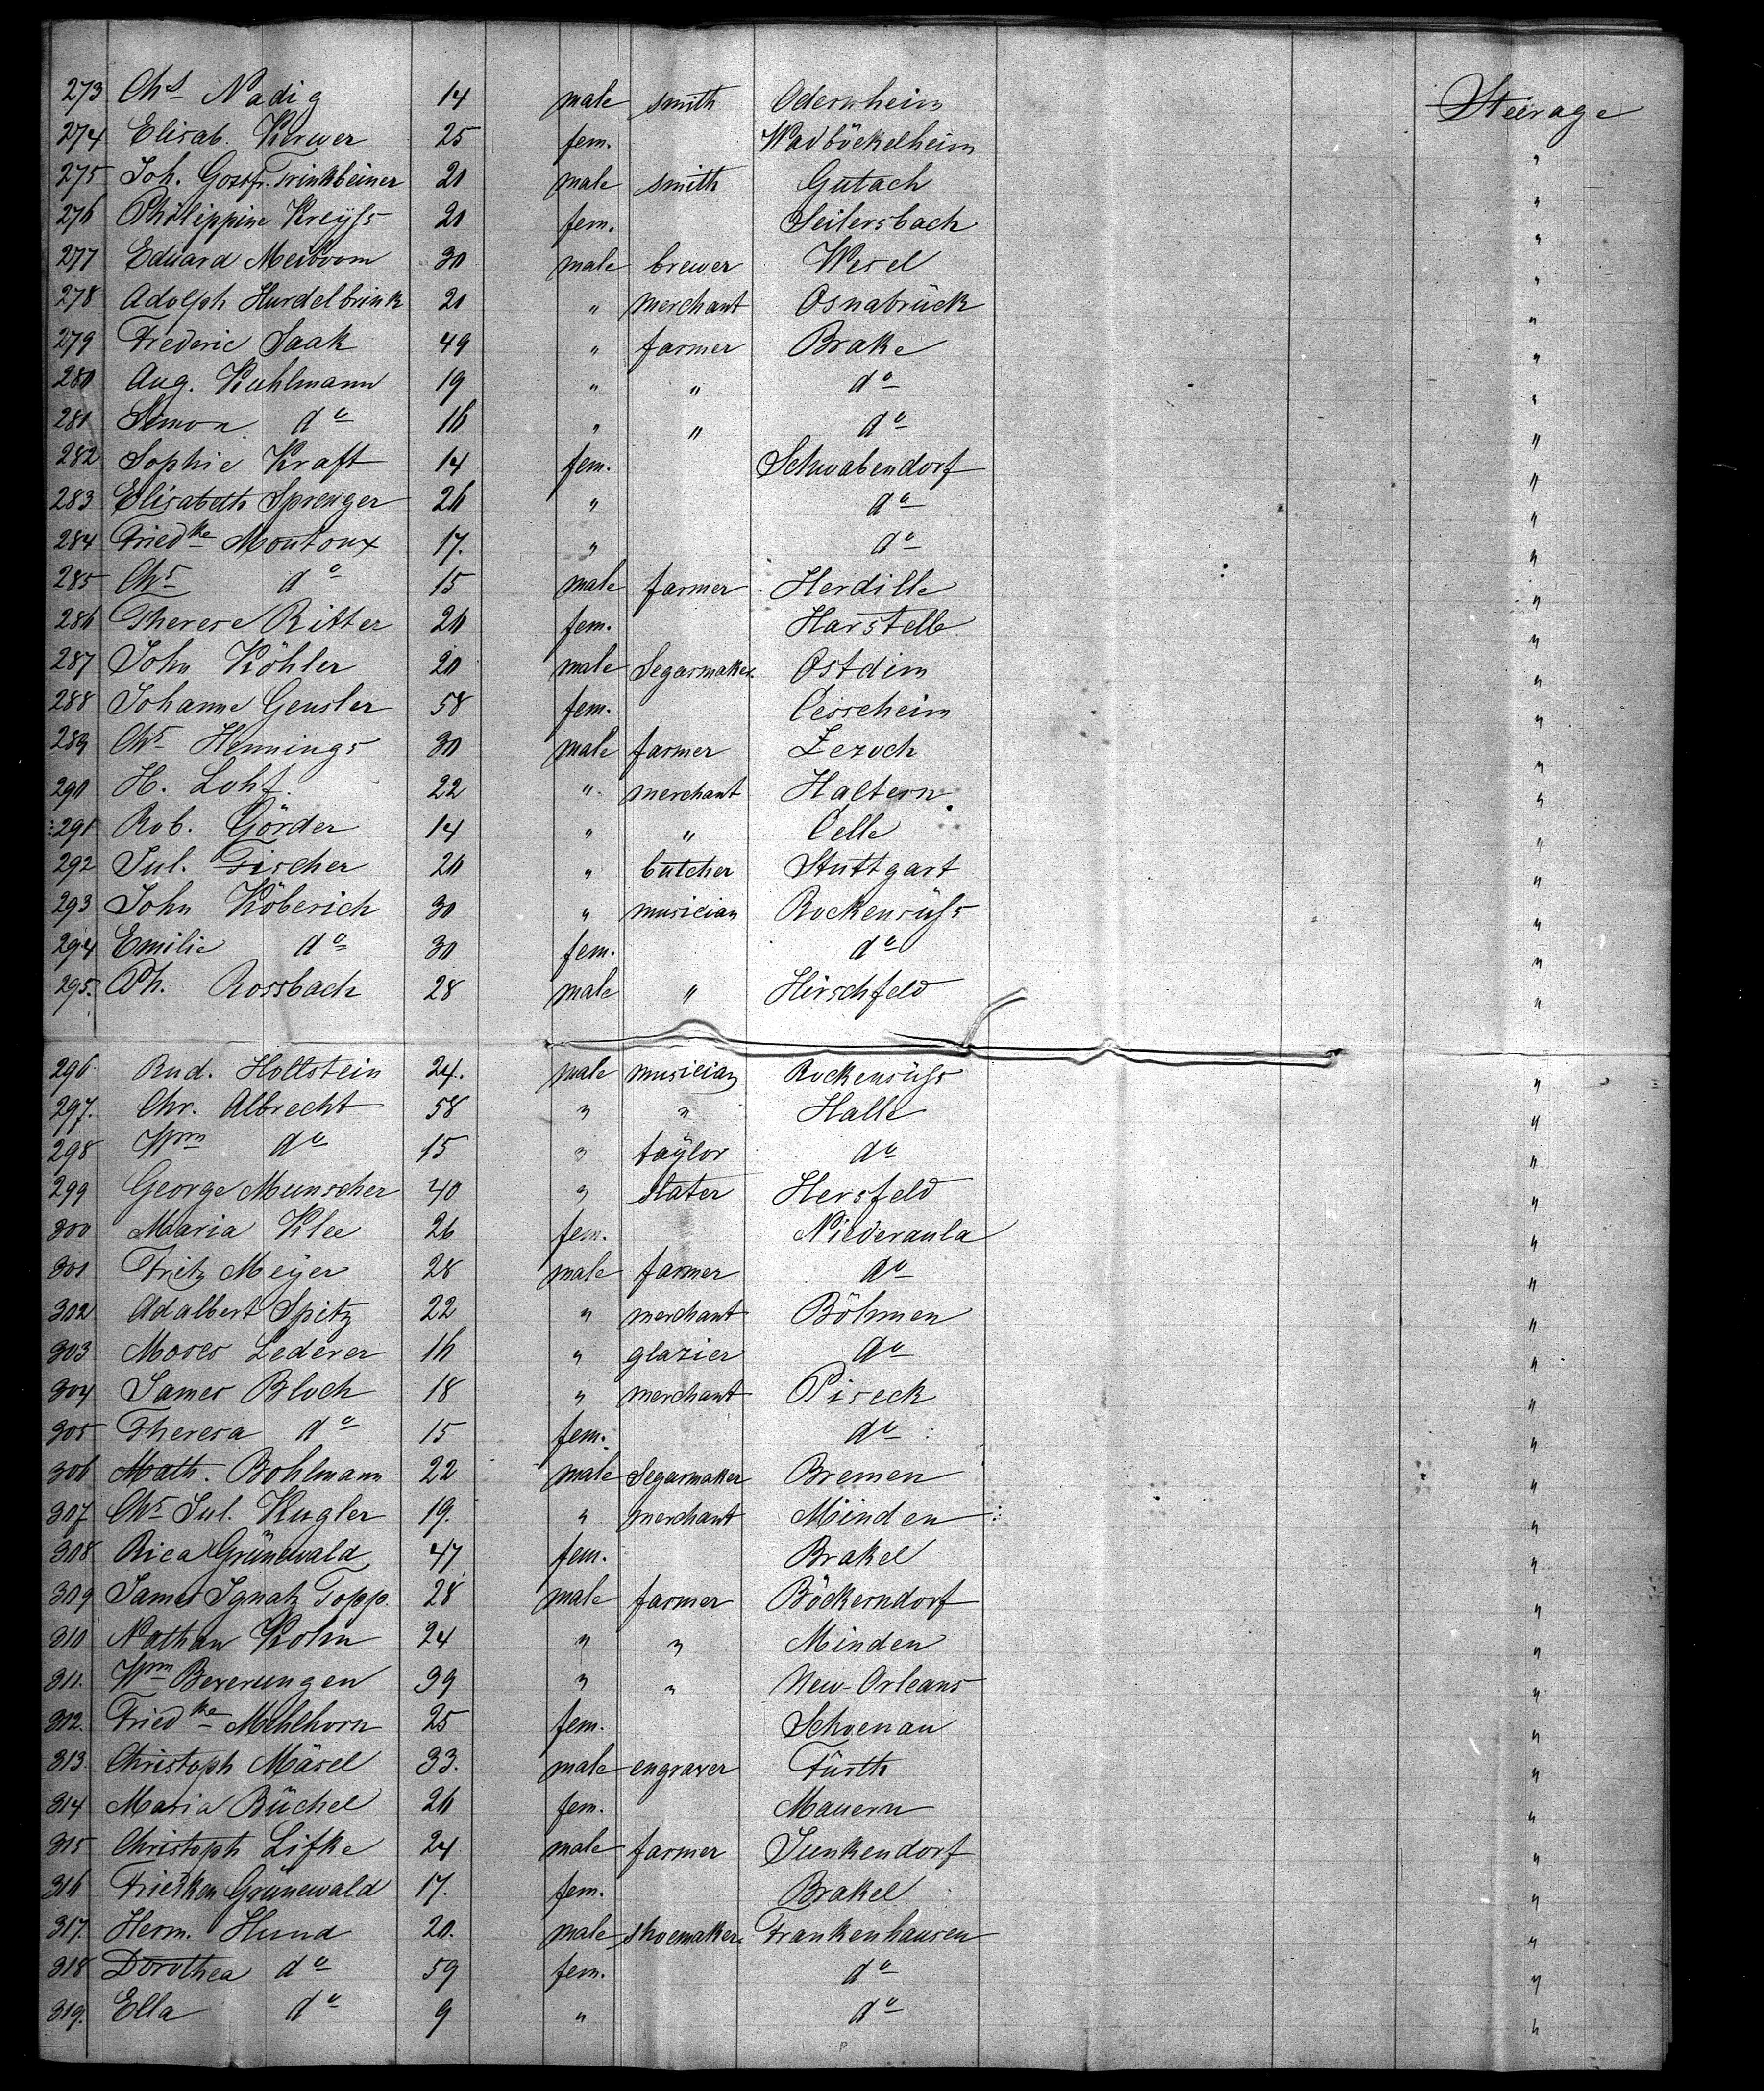 273 Chs Nadig 14 male smith Odernheim Steerage
274 Elisab. Kerwer 25 fem. Wadböckelheim "
275 Joh. Gottfr. Trinkbeiner 20 male smith Gutach "
276 Philippine Kreyſs 20 fem. Seilersbach "
277 Eduard Meiboom 30 male brewer Wesel "
278 Adolph Hurdelbrink 20 " merchant Osnabrück "
279 Frederic Saak 49 " farmer Brake "
280 Aug. Kuhlmann 19 " " do "
281 Simon do 16 " " do "
282 Sophie Kraft 14 fem. Schwabendorf "
283 Elisabeth Sprenger 26 " do "
284 Friedke Moutoux 17. " do "
285 Chs do 15 male farmer Herdille "
286 Therese Ritter 20 fem. Harstelle "
287 John Köhler 20 male Segarmaker Ostdim "
288 Johanne Gensler 58 fem. Cesseheim "
289 Chs Hennings 30 male farmer Lezoch "
290 H. Lohf. 22 " merchant Haltern "
291 Rob. Görder 14 " " Celle "
292 Jul. Fischer 20 " butcher Stuttgart "
293 John Köberich 30 " musician Rockensüſs "
294 Emilie do 30 fem. do "
295. Ph. Rossbach 28 male " Hirschfeld "
296 Rud. Holtstein 24. male musician Rockensüſs "
297. Chr. Albrecht 58 " " Halle "
298 Wm do 15 " taylor do "
299 George Munscher 40 " slater Hersfeld "
300 Maria Klee 26 fem. Niederaula "
301 Fritz Meyer 28 male farmer do "
302 Adalbert Spitz 22 " merchant Böhmen "
303 Moses Lederer 16 " glazier do "
304 James Bloch 18 " merchant Piseck "
305 Theresa do 15 fem. do "
306 Math. Bohlmann 22 male Segarmaker Bremen "
307 Chs Jul. Kugler 19. " merchant Minden "
308 Rica Grünewald 47 fem. Brakel "
309 James Ignatz Topp. 28 male farmer Böckerndorf "
310 Nathan Kohn 24 " " Minden "
311. Wm Beverungen 39 " " New-Orleans "
312. Friedke Mehlhorn 25 fem. Schoenau "
313. Christoph Mäsel 33. male engraver Fürth "
314 Maria Büchel 26 fem. Mauern "
315 Christoph Lifke 24 male farmer Junkendorf "
316 Friedken Grünewald 17. fem. Brakel "
317. Herm. Hund 20. male shoemaker. Frankenhausen "
318 Dorothea do 59 fem. do "
319. Ella do 9 " do "